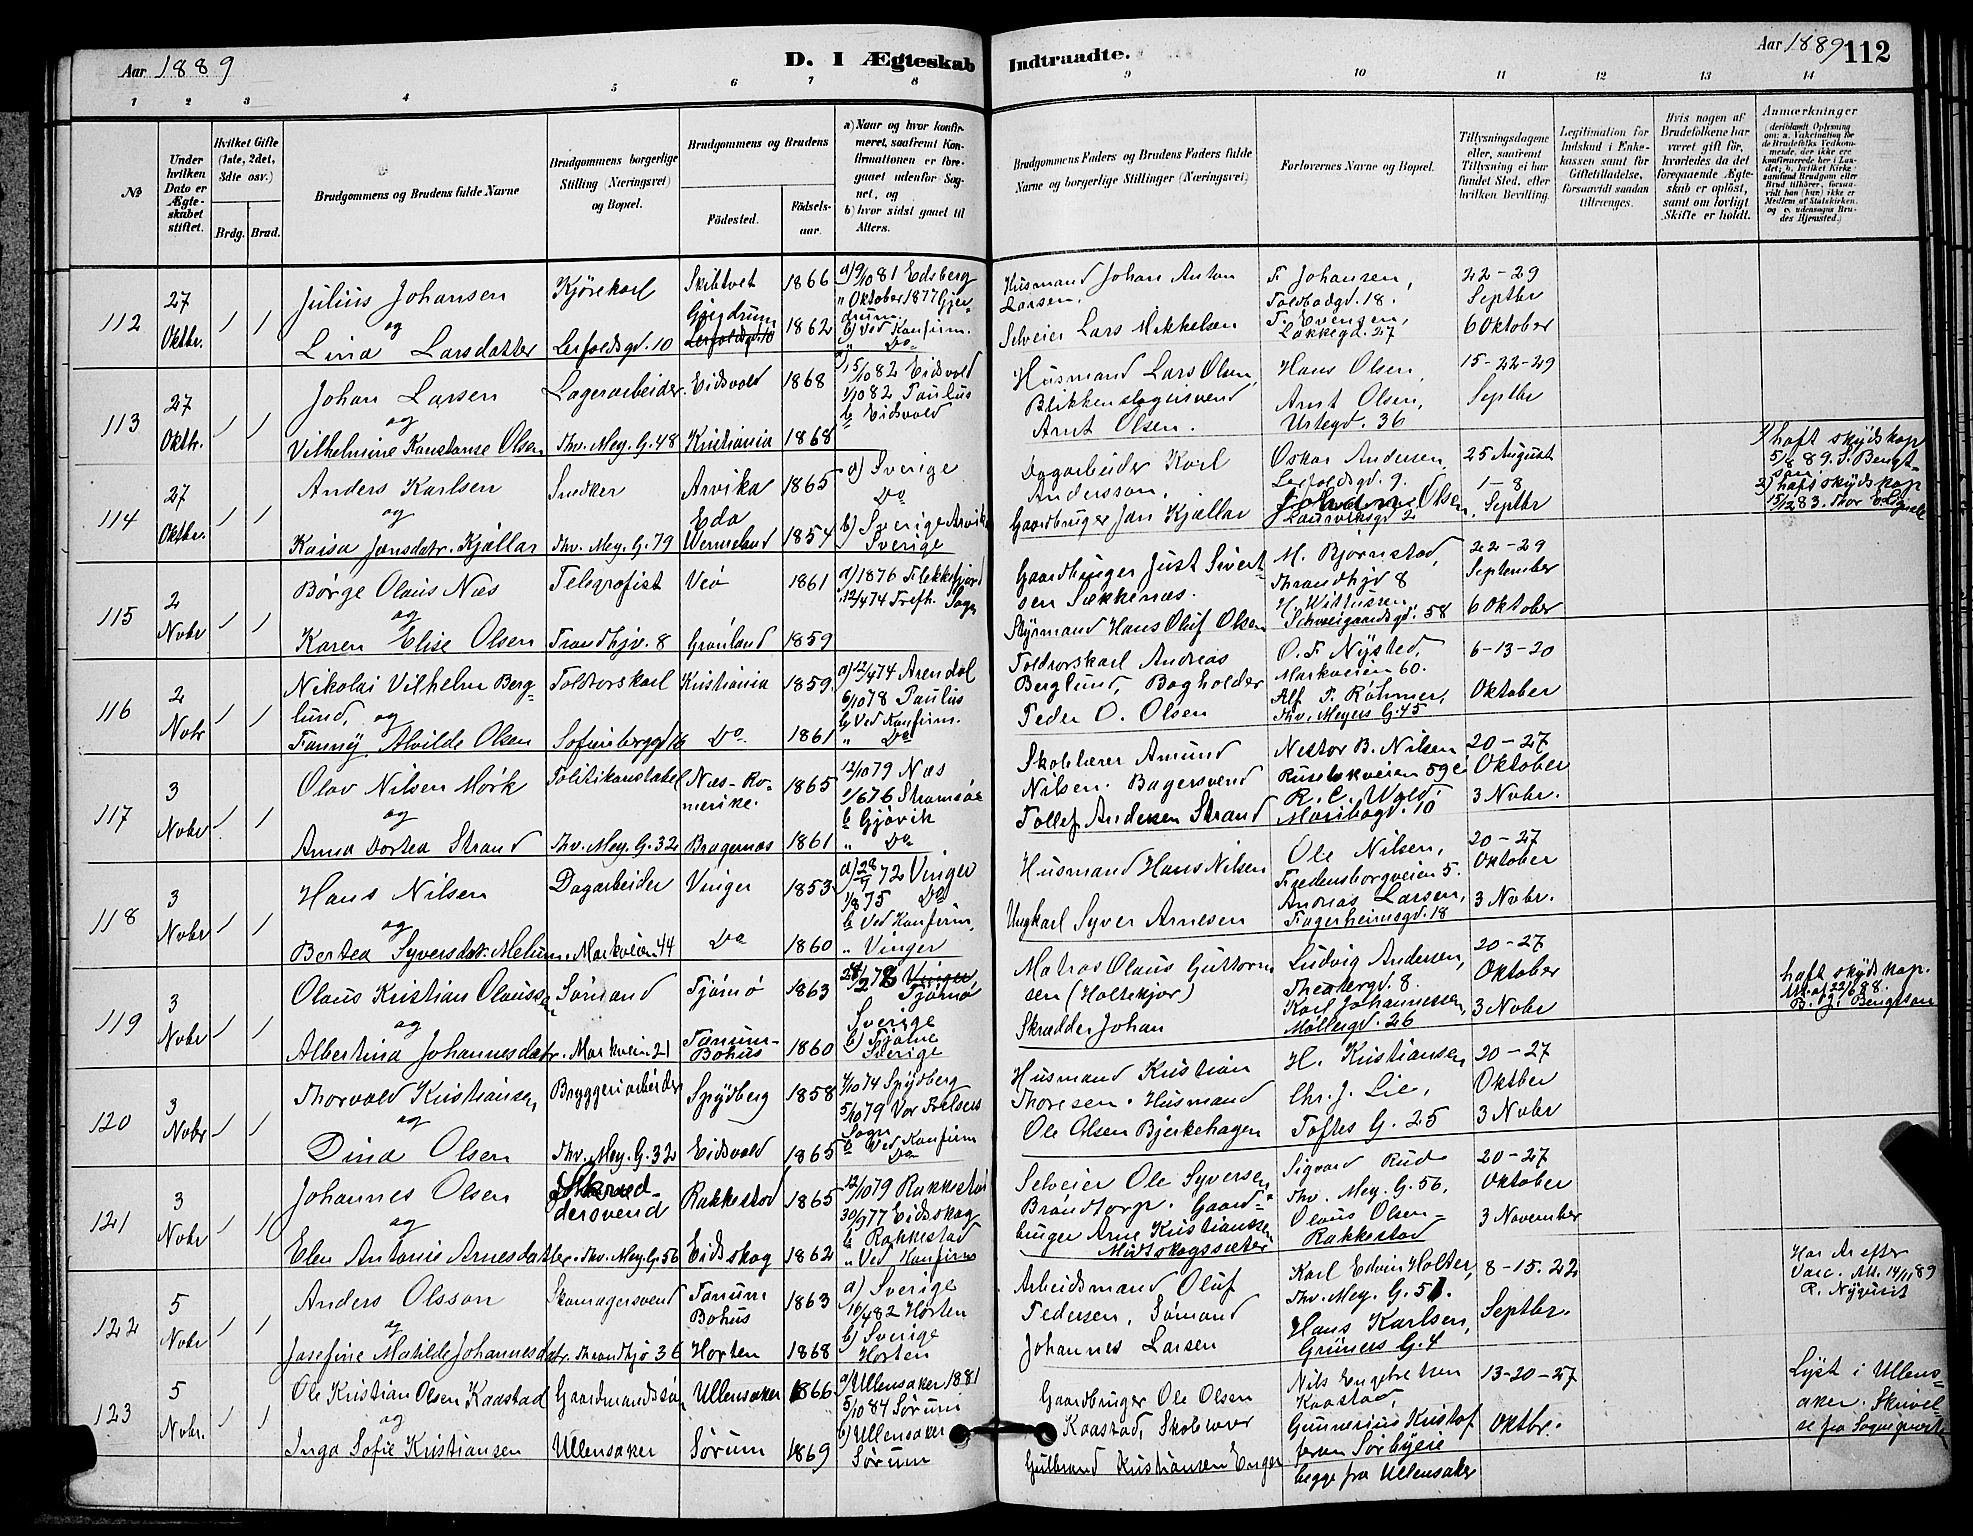 Aar 1889
D. I Ægteskab
Indtraadte.
Aar 1889
112
1 2 3 4 5 6 7 8 9 10 11 12 13 14
№
Under hvilken Dato er Ægteskabet stiftet.
Hvilket Gifte (1ste, 2det, 3dte osv.)
Brdg. Brud.
Brudgommens og Brudens fulde Navne
Brudgommens borgerlige Stilling (Næringsvei) og Bopæl.
Brudgommens og Brudens
Fødested.
Fødselsaar.
a) Naar og hvor konfirmeret, saafremt Konfirmationen er foregaaet udenfor Sognet, og
b) hvor sidst gaaet til Alters.
Brudgommens Faders og Brudens Faders fulde Navne og borgerlige Stillinger (Næringsvei)
Forlovernes Navne og Bopæl.
Tillysningsdagene eller, saafremt Tillysning ei har fundet Sted, efter hvilken Bevilling.
Legitimation for Indskud i Enkekassen samt for Giftetilladelse, forsaavidt saadan tiltrænges.
Hvis nogen af Brudefolkene har været gift før, hvorledes da det foregaaende Ægteskab er opløst, samt om lovligt Skifte er holdt.
Anmærkninger
112 27 Oktbr. 1 1
Julius Johansen
og
Lina Larsdatter
Kjørekarl
Lerfoldsgd. 10
Skibtvet 1866
Gjerdrum 1862
a) 9/10 81 Edsberg
" Oktober 1877 Gjerdrum.
b) Ved Konfirm.
" Do
Husmand Johan Anton Larsen.
Selveier Lars Mikkelsen
F. Johansen,
Toldbodgd. 18.
F. Evensen,
Løkkegd. 27
22-29
Septbr
6 Oktober
113 27 Oktbr. 1 1
Johan Larsen
og
Vilhelmine Konstanse Olsen
Lagerarbeider.
Thv. Mey. G. 48
Eidsvold 1868
Kristiania 1868
15/10 82 Eidsvold
1/10 82 Paulus
b Eidsvold
Husmand Lars Olsen,
Blikkenslagersvend
Arnt Olsen.
Hans Olsen,
Arnt Olsen,
Urtegd. 36
15-22-29
Septbr
114 27 Oktbr. 1 1
Anders Karlsen
og
Kaisa Jonsdatr. Kjællar
Snedker
Thv. Mey. G. 79
Arvika 1865
Eda Wermeland 1854
a) Sverige
Do
b) Sverige Arvika
Sverige
Dagarbeider Karl
Andersson,
Gaardbruger Jan Kjællar
Oskar Andersen
Lerfoldsgd. 9.
Olsen,
Laurviksgd 2
25 August
1-8
Septbr
1) haft skydskap
5/8 89. S. Bengtson.
2) haft skydskap
15/12 83.
115 2 Nobr 1 1
Børge Olaus Næs
og
Karen Elise Olsen
Telegrafist
Trondhjv. 8
Veø 1861
Grønland 1859
a) 1876 Flekkefjord
12/4 74 Trefh. Sogn
Gaardbruger Just Sivertsen Sækkenæs.
Styrmand Hans Oluf Olsen
M. Bjørnstad,
Thrandhjv 8
Schweigaardsgd. 58
22-29
September
6 Oktober
116 2 Nobr 1 1
Nikolai Vilhelm Berglund,
og
Fanny Alvilde Olsen
Toldrorskarl
Sofienberggd 16
Kristiania 1859
Do 1861
a) 12/4 74 Arendal
6/10 78 Paulus
b Ved Konfirm.
" Do
Toldrorskarl Andreas
Berglund, Bogholder
Peder O. Olsen
O. F. Nysted,
Markveien 60.
Alf F. Røhmer,
Thv. Meyers G. 45
6-13-20
Oktober
117 3 Nobr 1 1
Olav Nilsen Mørk
og
Anna Dortea Strand
Politikonstabel
Thv. Mey. G. 32
Næs-Romerike. 1865
Bragernæs 1861
12/10 79 Næs
1/6 76 Strømsø
b Gjøvik
" Do
Skolelærer Amund
Nilsen. Bagersvend
Tollef Andersen Strand
Nestor B. Nilsen
Ruseløkveien 59
R. C. Wold.
Maribogd. 10
20-27
Oktober
3 Nobr.
118 3 Nobr 1 1
Hans Nilsen
og
Bertea Syversdatr. Melum
Dagarbeider
Markveien 44
Vinger 1853
Do 1860
a) 28/9 72 Vinger
1/8 75 Do
b Ved Konfirm,
" Vinger
Husmand Hans Nilsen
Ungkarl Syver Arnesen
Ole Nilsen,
Fredensborgveien 5.
Andreas Larsen,
Fagerheimsgd. 18
20-27
Oktober
3 Nobr.
119 3 Nobr 1 1
Olaus Kristian Olaussen
og
Albertina Johannesdatr.
Sømand
Markveien 21
Tjømø 1863
Tanum-Bohus 1860
Tjømø
Sverige
b) Tjømø
Sverige
Matros Olaus Guttormsen (Holtekjær)
Skrædder Johan
Ludvig Andersen,
Theatergd. 8.
Karl Johannessen,
Møllergd. 26
20-27
Oktober
3 Nobr
haft skydskap.
22/6 88.
B. J. Bengtson
120 3 Nobr 1 1
Thorvald Kristiansen
og
Dina Olsen
Bryggeriarbeider
Thv. Mey. G. 32
Spydberg 1858
Eidsvold 1865
4/10 74 Spydberg
5/10 79 Vor Frelsers
Sogn
b Ved Konfirm
Do
Husmand Kristian
Thoresen. Husmand
Ole Olsen Bjerkehagen
H. Kristiansen,
Chr. J. Lie,
Toftes G. 25
20-27
Oktber
3 Nobr
121 3 Nobr 1 1
Johannes Olsen
og
Elen Antonie Arnesdatter.
Skræddersvend
Thv. Mey. G. 56
Rakkestad 1865
Eidskog 1862
12/10 79 Rakkestad
30/9 77 Eidskog
b Rakkestad
" Ved Konfirm
Selveier Ole Syversen
Brøndtorp. Gaardbruger Arne Kristiansen
Midtskogssæter
Sigvard Rud
Thv. Mey. G. 56,
Olaus Olsen-
Rakkestad
20-27
Oktober
3 November
122 5 Nobr 1 1
Anders Olsson
og
Josefine Matilde Johannesdatr.
Skomagersvend
Throndhjv 36
Tanum Bohus 1863
Horten 1868
a) Sverige
16/4 82 Horten
b) Sverige
Horten
Arbeidsmand Oluf
Pedersen, Sømand
Johannes Larsen
Karl Edvin Holter,
Thv. Mey. G. 51.
Hans Karlsen,
Grüners G. 4
8-15-22
Septbr.
Har Ar efter
Vacc. Att. 14/11 89
R. Nyqvist
123 5 Nobr. 1 1
Ole Kristian Olsen Kaastad
og
Inga Sofie Kristiansen
Gaardmandssøn
Ullensaker
Ullensaker 1866
Sørum 1869
a) Ullensaker 1881
5/10 84 Sørum
b) Ullensaker
Sørum
Gaardbruger Ole Olsen
Kaastad, Skolelærer
Gulbrand Kristiansen Enger
Nils Engebretsen
Kaastad,
Gunnerius Kristofersen Sørbyeie
begge fra Ullensaker
13-20-27
Oktbr.
Lyst i Ullensaker. Skrivelse fra Sognepresten